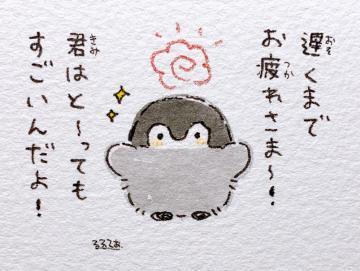 遅くまで
お疲れさま〜！
君はと〜っても
すごいんだよ！
るるてあ